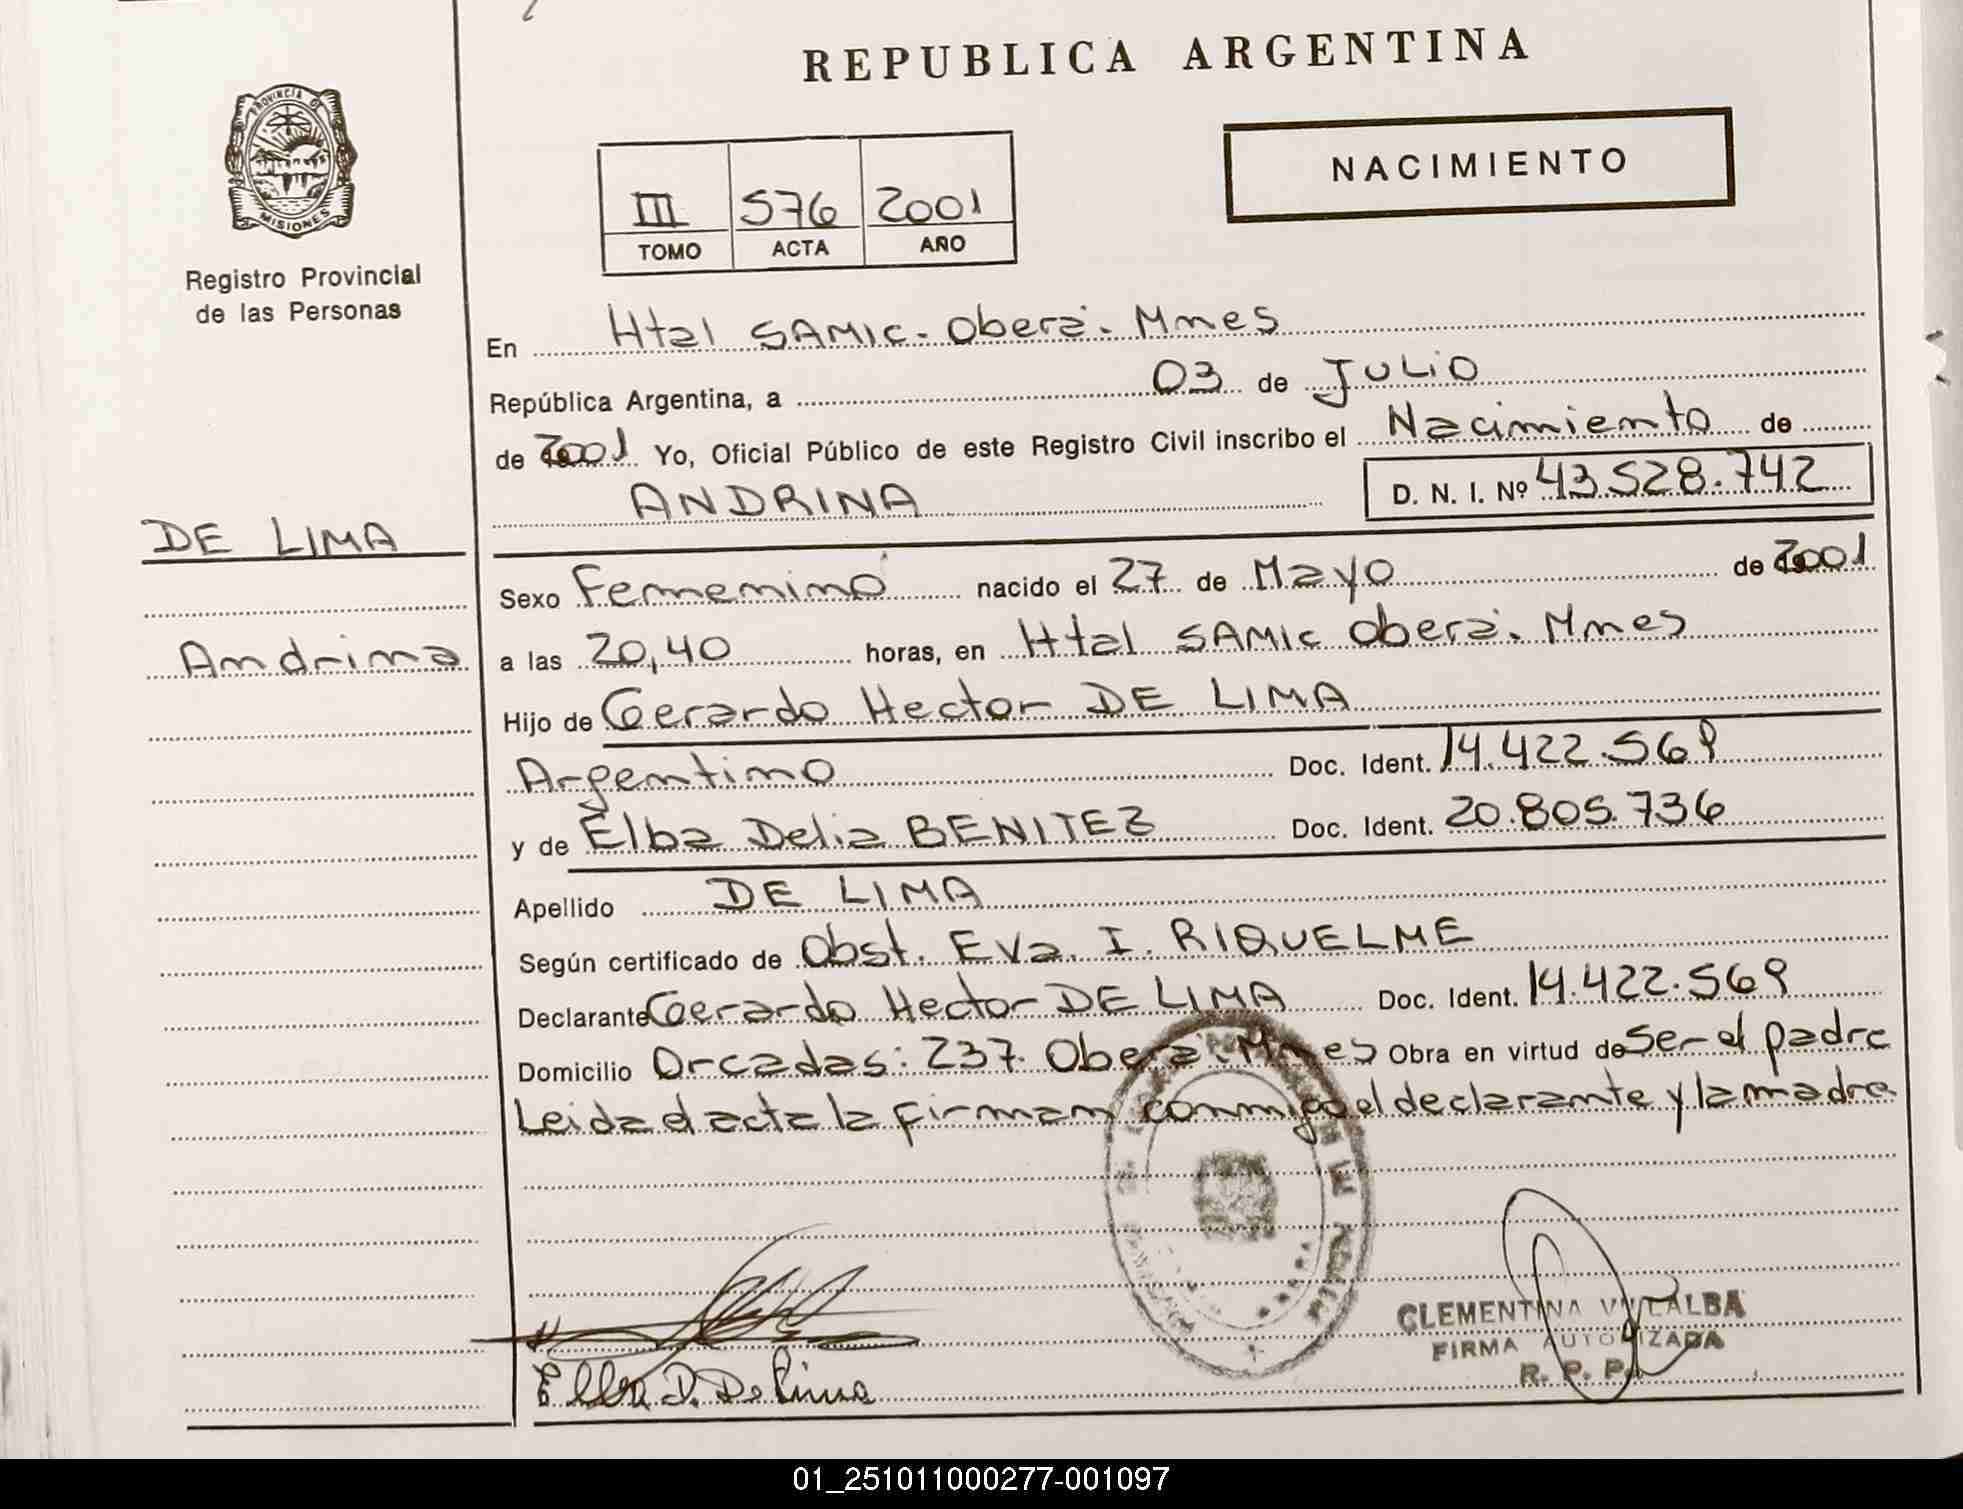 REPUBLICA ARGENTINA
PROVINCIA D
MISIONES
Registro Provincial
de las Personas
NACIMIENTO
III 576 2001
TOMO ACTA AÑO
En Htal SAMIC. Oberá. Mnes
República Argentina, a 03 de JULIO
de 2001 Yo, Oficial Público de este Registro Civil inscribo el Nacimiento de
ANDRINA D. N. I. Nº 43.528.742
DE LIMA
Andrina
Sexo Femenino nacido el 27 de Mayo de 2001
a las 20,40 horas, en Htal SAMIC Oberá. Mnes
Hijo de Gerardo Hector DE LIMA
Argentino Doc. Ident. 14.422.569
y de Elba Delia BENITEZ Doc. Ident. 20.805.736
Apellido DE LIMA
Según certificado de Obst. Eva. I. RIQUELME
Declarante Gerardo Hector DE LIMA Doc. Ident. 14.422.569
Domicilio Orcadas: 237. Oberá. Mnes Obra en virtud de Ser el padre
Leida el acta la firman conmigo el declarante y la madre
Elba D. De Lima
CLEMENTINA VILLALBA
FIRMA AUTORIZADA
R. P. P.
01_251011000277-001097